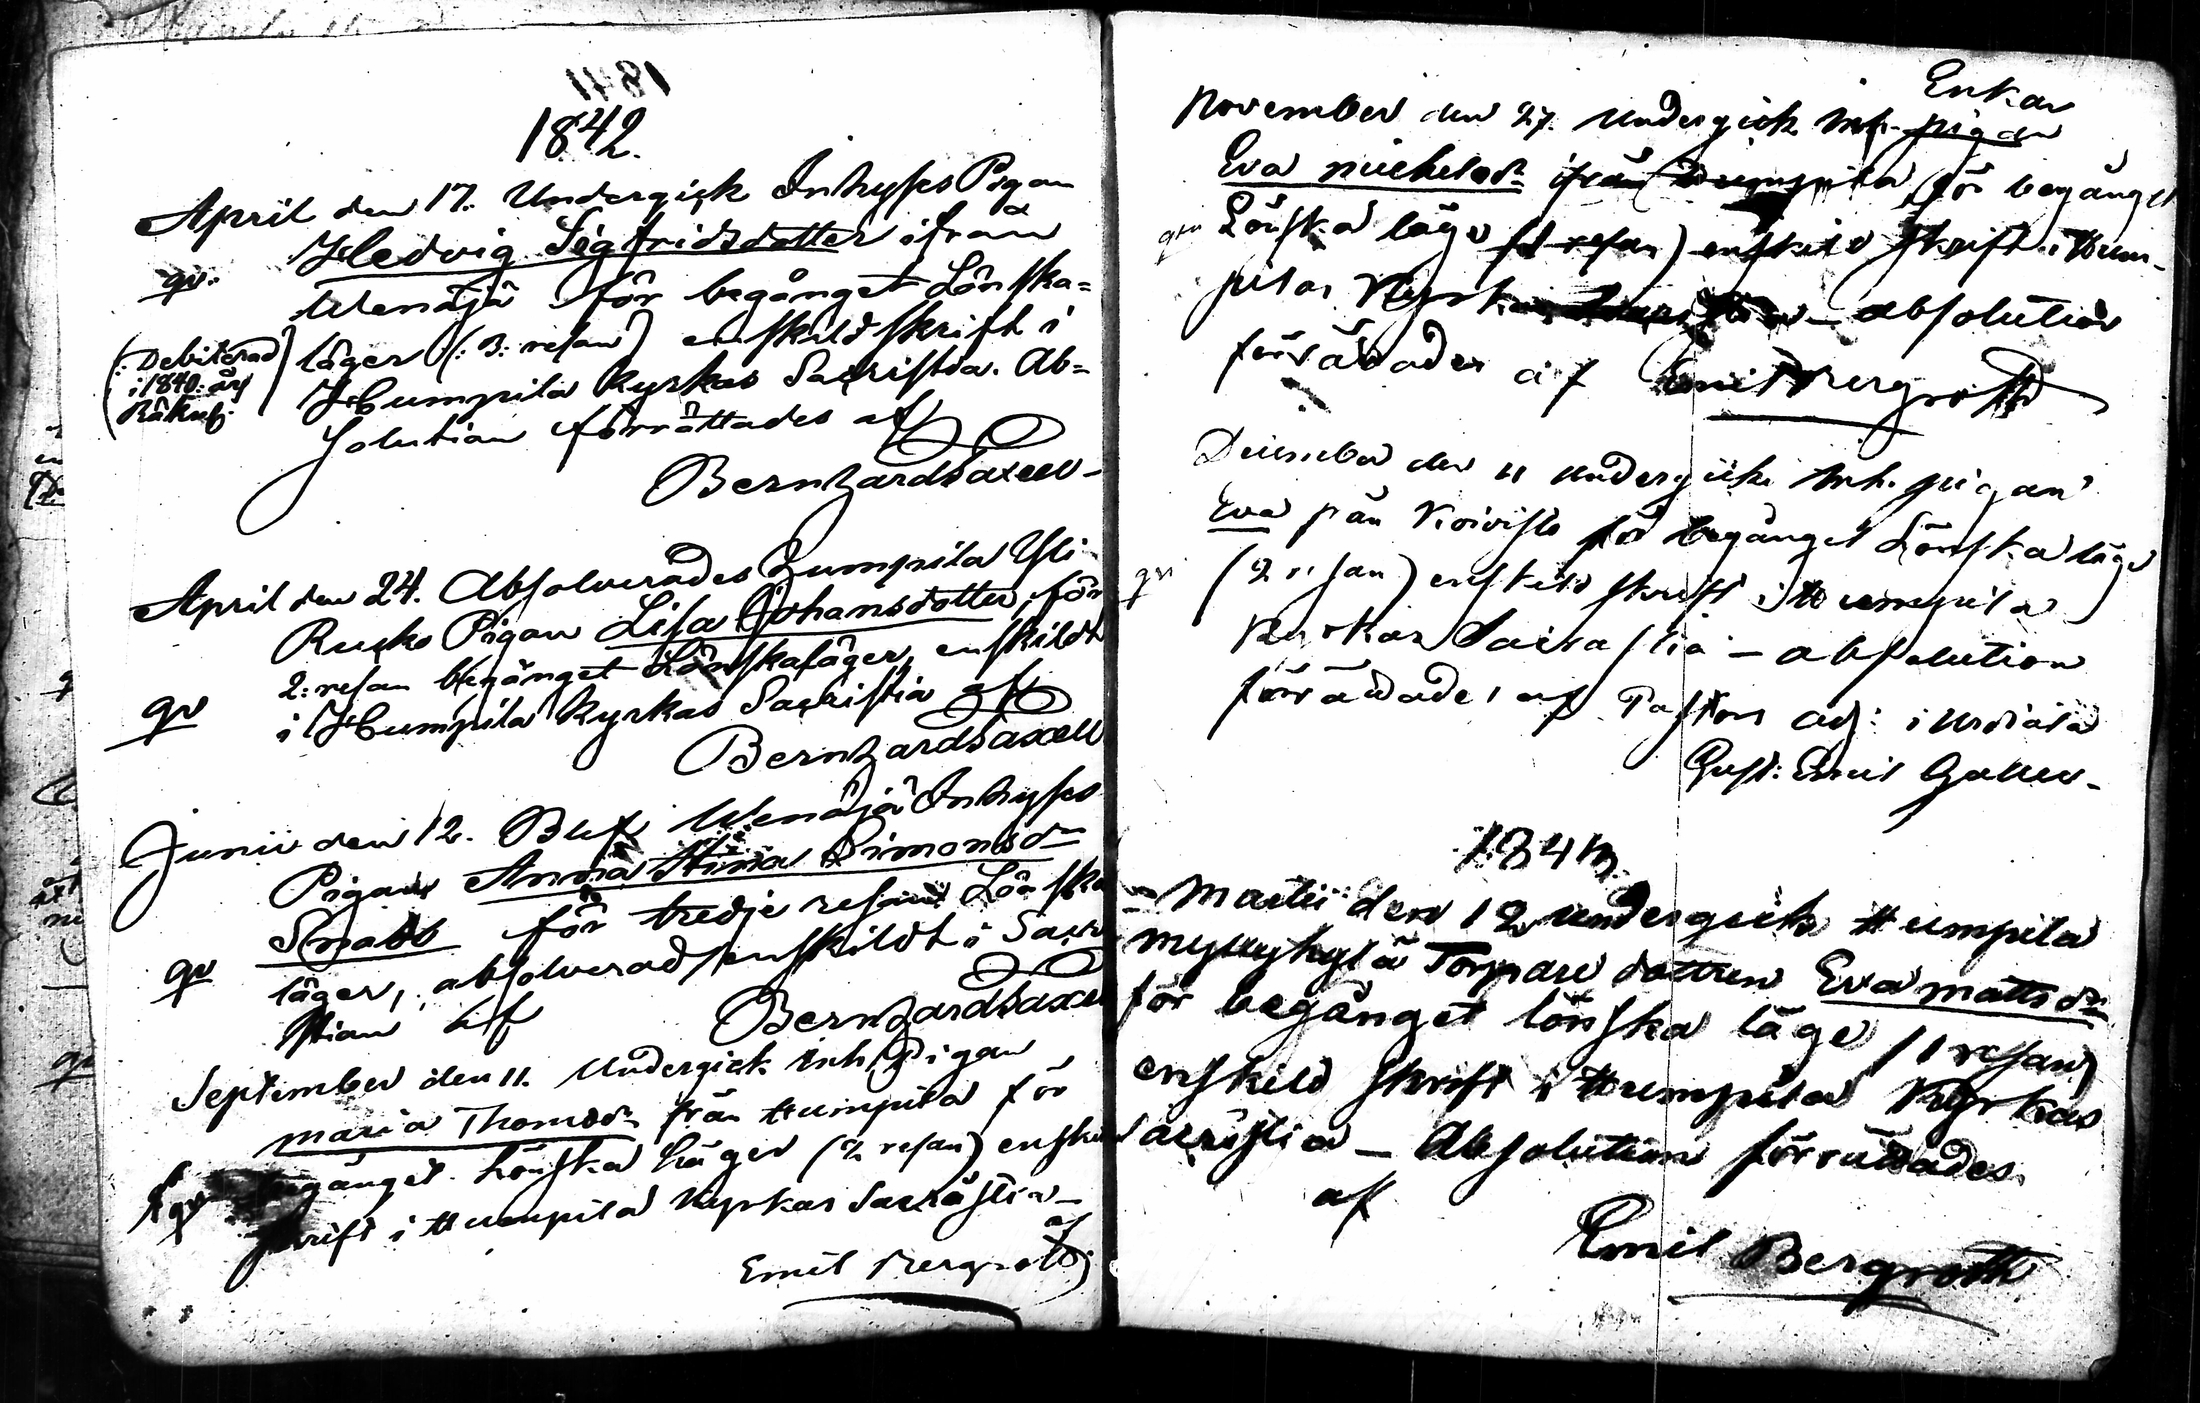 1842.
April den 17. Undergick Inhyses Pigan
Hedvig Sigfridsdotter ifrån
qv.
Wenäjä för begånget Lönska=
(: Debiterad
i 1840: års
Räkn:)
läger (: 3: resan) enskild skrift i
Humpila Kyrkas Sacristia. Ab=
solution förrättades af
Bernhard Saxell
April den 24. Absolverades Humpila Yli
Rusko Pigan Lisa Johansdotter, för
2: resan begånget Lönskaläger, enskildt
qv
i Humpila Kyrkas Sacristia af
Bernhard Saxell
Junii den 12. Blef Wenäjä Inhyses
Pigan Anna Stina Simonsdr
Snabb för tredje resan Lönska
qv
läger, absolverad enskildt i Sacri
stian af
Bernhard Saxell
September den 11. Undergick Inh. Pigan
Maria Thomsdr från Humpila för
begånget Lönska Läger (2 resan) enskild
qv
skrift i Humpila Kyrkas Sacristia –
af
Emil Bergroth
Enkan
November den 27. Undergick Inh. pigan
Eva Michelsdr ifrån Humpila för begånget
Lönska läge (1 resan) enskild skrift i Hum-
pila Kyrka – absolution
förrättades af Emil Bergroth
December den 11 undergick Inh. pigan
Eva från Koivisto för begånget Lönska läge
qv
(2 resan) enskild skrift i Humpila
Kyrkas Sacristia – absolution
förrättades af Pastors adj: i Urdiala
Gust: Emil
1843.
Martii den 12 undergick Humpila
Myllykylä Torpare dottren Eva Mattsdr
för begånget lönska läge (1 resan)
enskild skrift i Humpila Kyrkas
sacristia – Absolution förrättades
af
Emil Bergroth